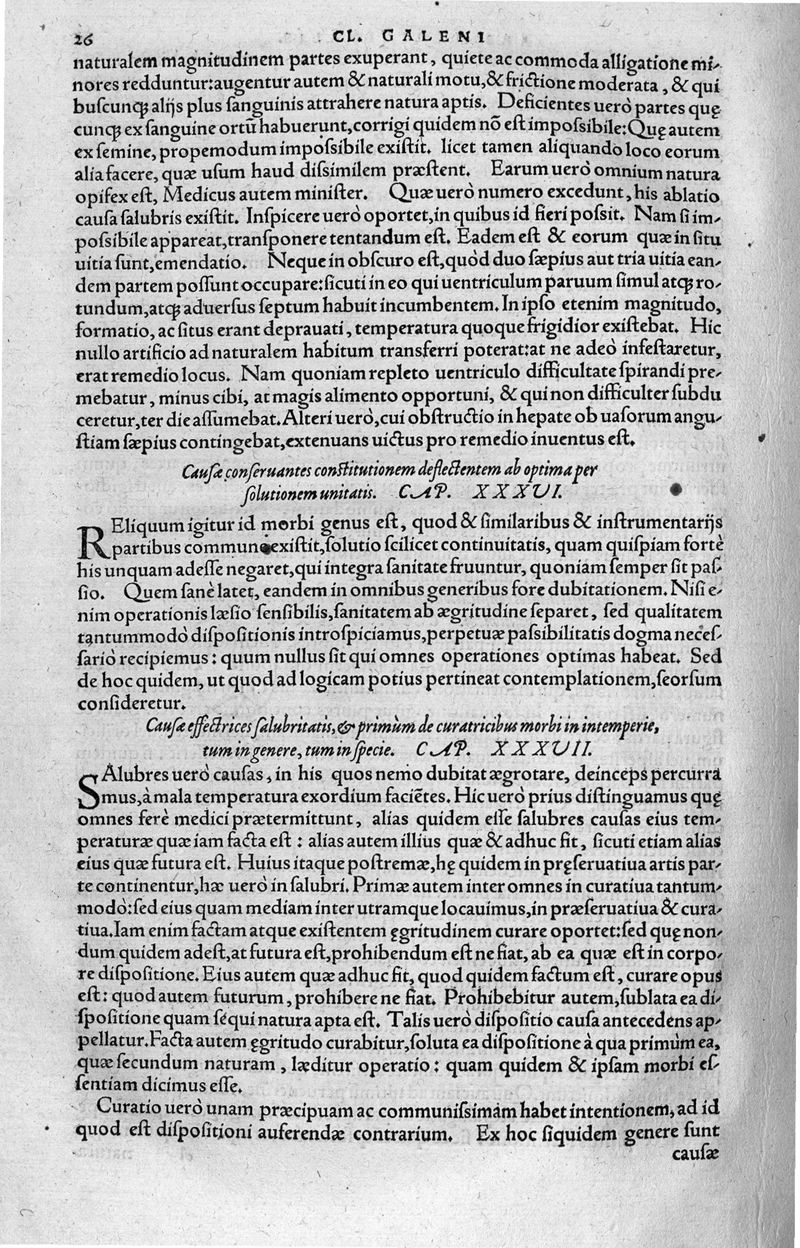 26 CL. GALENI
naturalem magnitudinem partes exuperant, quiete ac commoda alligatione mi-
nores redduntur:augentur autem & naturali motu,& frictione moderata, & qui
buſcunqꝫ alijs plus ſanguinis attrahere natura aptis. Deficientes uerò partes quę
cunqꝫ ex ſanguine ortũ habuerunt,corrigi quidem nõ eſt impoſsibile:Quę autem
ex ſemine, propemodum impoſsibile exiſtit. licet tamen aliquando loco eorum
alia facere, quæ uſum haud diſsimilem præſtent. Earum uerò omnium natura
opifex eſt, Medicus autem miniſter. Quæ uerò numero excedunt, his ablatio
cauſa ſalubris exiſtit. Inſpicere uerò oportet,in quibus id fieri poſsit. Nam ſi im-
poſsibile appareat,tranſponere tentandum eſt. Eadem eſt & eorum quæ in ſitu
uitia ſunt,emendatio. Neque in obſcuro eſt,quòd duo ſæpius aut tria uitia ean-
dem partem poſſunt occupare:ſicuti in eo qui uentriculum paruum ſimul atqꝫ ro-
tundum,atqꝫ aduerſus ſeptum habuit incumbentem. In ipſo etenim magnitudo,
formatio, ac ſitus erant deprauati, temperatura quoque frigidior exiſtebat. Hic
nullo artificio ad naturalem habitum transferri poterat:at ne adeò infeſtaretur,
erat remedio locus. Nam quoniam repleto uentriculo difficultate ſpirandi pre-
mebatur, minus cibi, at magis alimento opportuni, & qui non difficulter ſubdu
ceretur,ter die aſſumebat. Alteri uerò,cui obſtructio in hepate ob uaſorum angu-
ſtiam ſæpius contingebat,extenuans uictus pro remedio inuentus eſt.
Cauſæ conſeruantes conſtitutionem deflectentem ab optima per
ſolutionem unitatis. CAP. XXXVI.
REliquum igitur id morbi genus eſt, quod & ſimilaribus & inſtrumentarijs
partibus commune exiſtit,ſolutio ſcilicet continuitatis, quam quiſpiam fortè
his unquam adeſſe negaret,qui integra ſanitate fruuntur, quoniam ſemper ſit paſ-
ſio. Quem ſanè latet, eandem in omnibus generibus fore dubitationem. Niſi e-
nim operationis læſio ſenſibilis,ſanitatem ab ægritudine ſeparet, ſed qualitatem
tantummodò diſpoſitionis introſpiciamus,perpetuæ paſsibilitatis dogma neceſ-
ſariò recipiemus: quum nullus ſit qui omnes operationes optimas habeat. Sed
de hoc quidem, ut quod ad logicam potius pertineat contemplationem,ſeorſum
conſideretur.
Cauſæ effectrices ſalubritatis,& primùm de curatricibus morbi in intemperie,
tum in genere, tum in ſpecie. CAP. XXXVII.
SAlubres uerò cauſas, in his quos nemo dubitat ægrotare, deinceps percurra
mus,à mala temperatura exordium faciẽtes. Hic uerò prius diſtinguamus quę
omnes ferè medici prætermittunt, alias quidem eſſe ſalubres cauſas eius tem-
peraturæ quæ iam facta eſt: alias autem illius quæ & adhuc fit, ſicuti etiam alias
eius quæ futura eſt. Huius itaque poſtremæ,hę quidem in pręſeruatiua artis par-
te continentur,hæ uerò in ſalubri. Primæ autem inter omnes in curatiua tantum-
modò:ſed eius quam mediam inter utramque locauimus,in præſeruatiua & cura-
tiua. Iam enim factam atque exiſtentem ęgritudinem curare oportet:ſed quę non-
dum quidem adeſt,at futura eſt,prohibendum eſt ne fiat, ab ea quæ eſt in corpo-
re diſpoſitione. Eius autem quæ adhuc fit, quod quidem factum eſt, curare opus
eſt: quod autem futurum, prohibere ne fiat. Prohibebitur autem,ſublata ea di-
ſpoſitione quam ſequi natura apta eſt. Talis uerò diſpoſitio cauſa antecedens ap-
pellatur. Facta autem ęgritudo curabitur,ſoluta ea diſpoſitione à qua primùm ea,
quæ ſecundum naturam, læditur operatio: quam quidem & ipſam morbi eſ-
ſentiam dicimus eſſe.
Curatio uerò unam præcipuam ac communiſsimam habet intentionem, ad id
quod eſt diſpoſitioni auferendæ contrarium. Ex hoc ſiquidem genere ſunt
cauſæ